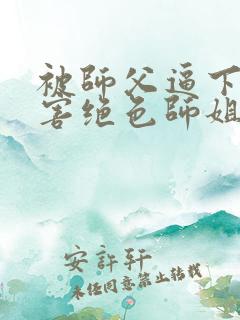 被師父逼下
害绝色師姐
安許轩
未经同意禁止转载